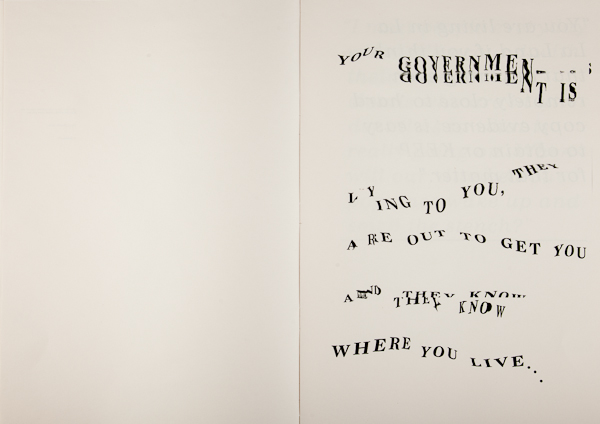 YOUR GOVERNMENT IS
LYING TO YOU, THEY
ARE OUT TO GET YOU
AND THEY KNOW
WHERE YOU LIVE...